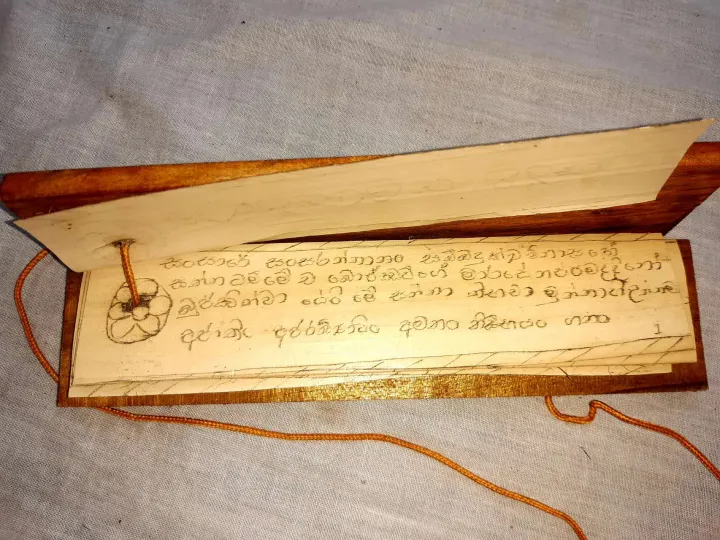 සංසාරේ සංසරන්තානං සබ්බදුක්ඛවිනාසනේ
සත්තධම්මේ ච බොජ්ඣඞ්ගේ මාරසේනපමද්දිනෝ
බුජ්ඣිත්වා යේපි මේ සත්තා තිභවා
අජාතිං අජරාබ්‍යාධිං අමතං නිබ්භයං ගතා
1